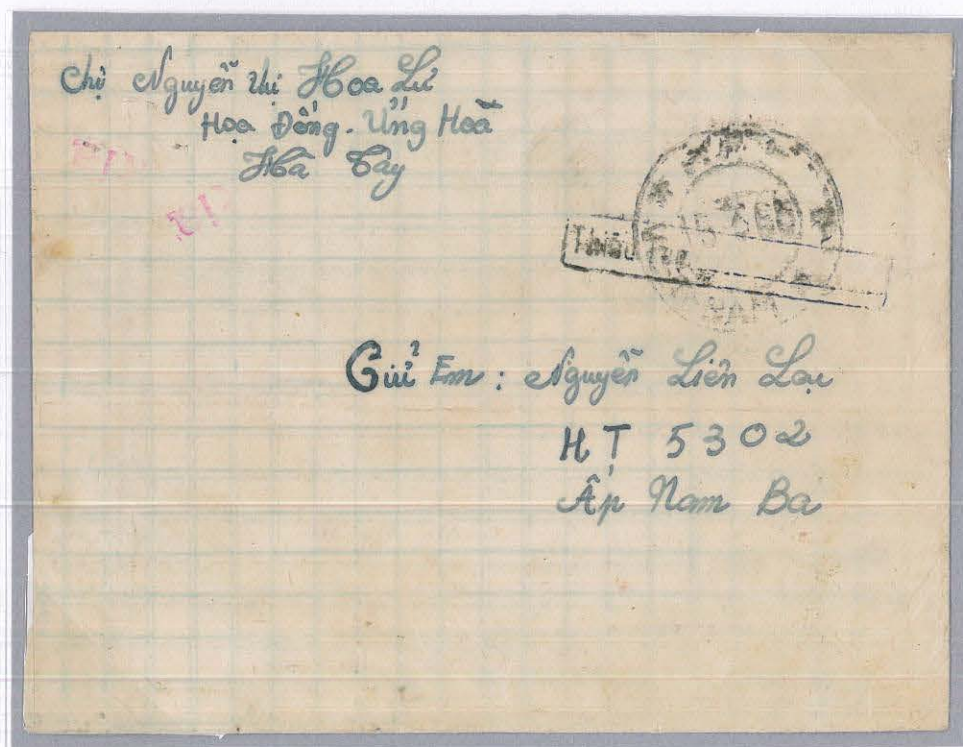 Chị Nguyễn Thị Hoa Lư
Hoạ Đống - Ứng Hoà
Hà Tây
15 6 66
Thiếu
Gửi Em: Nguyễn Liên Lạc
HT 5302
Ấp Nam Ba